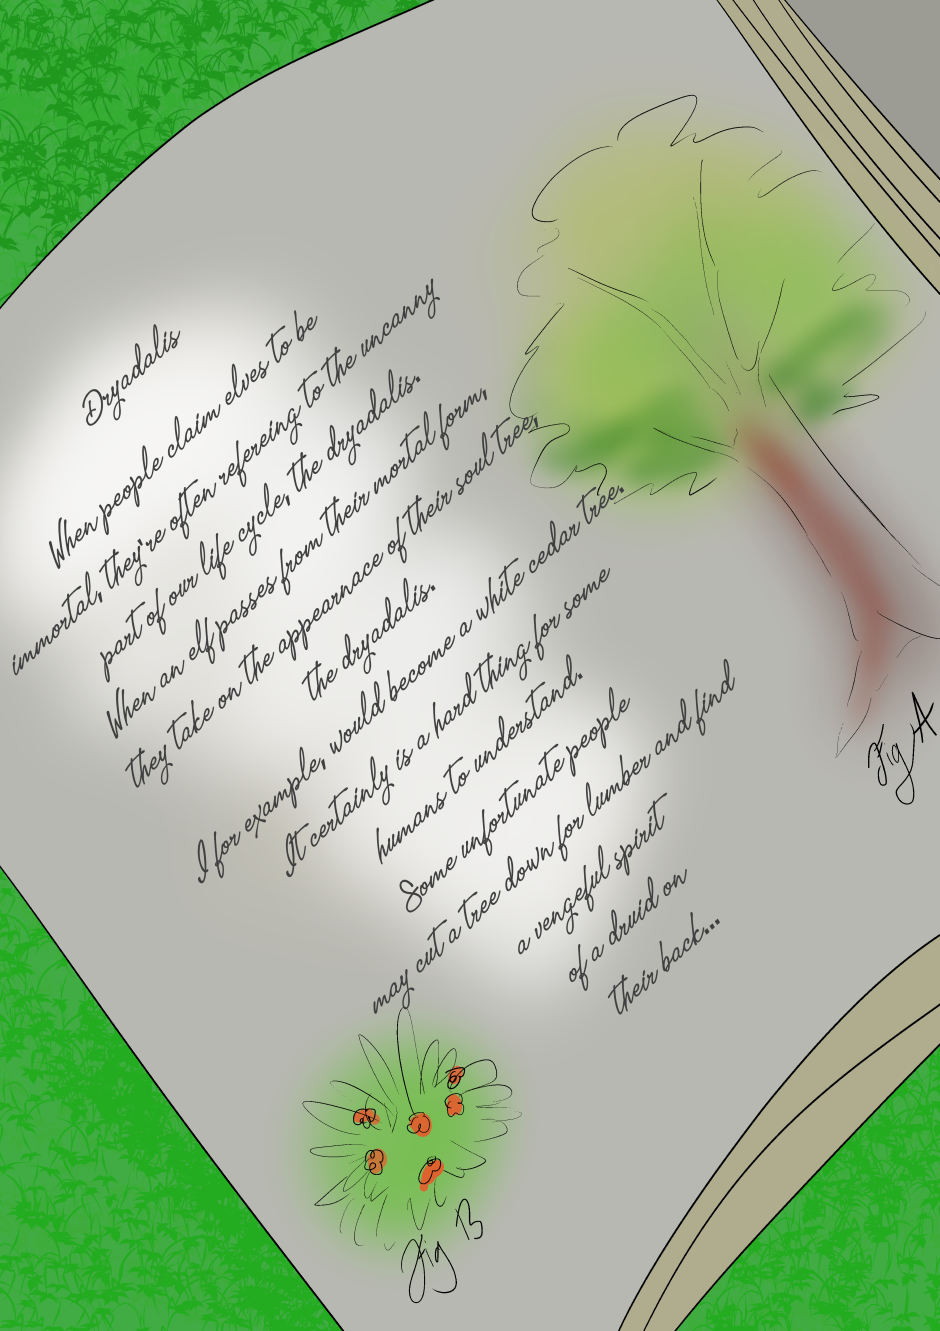 Dryadalis
When people claim elves to be
immortal, they're often refereing to the uncanny
part of our life cycle, the dryadalis.
When an elf passes from their mortal form,
they take on the appearnace of their soul tree,
the dryadalis.
I for example, would become a white cedar tree.
It certainly is a hard thing for some
humans to understand.
Some unfortunate people
may cut a tree down for lumber and find
a vengeful spirit
of a druid on
their back...
Fig A
Fig B